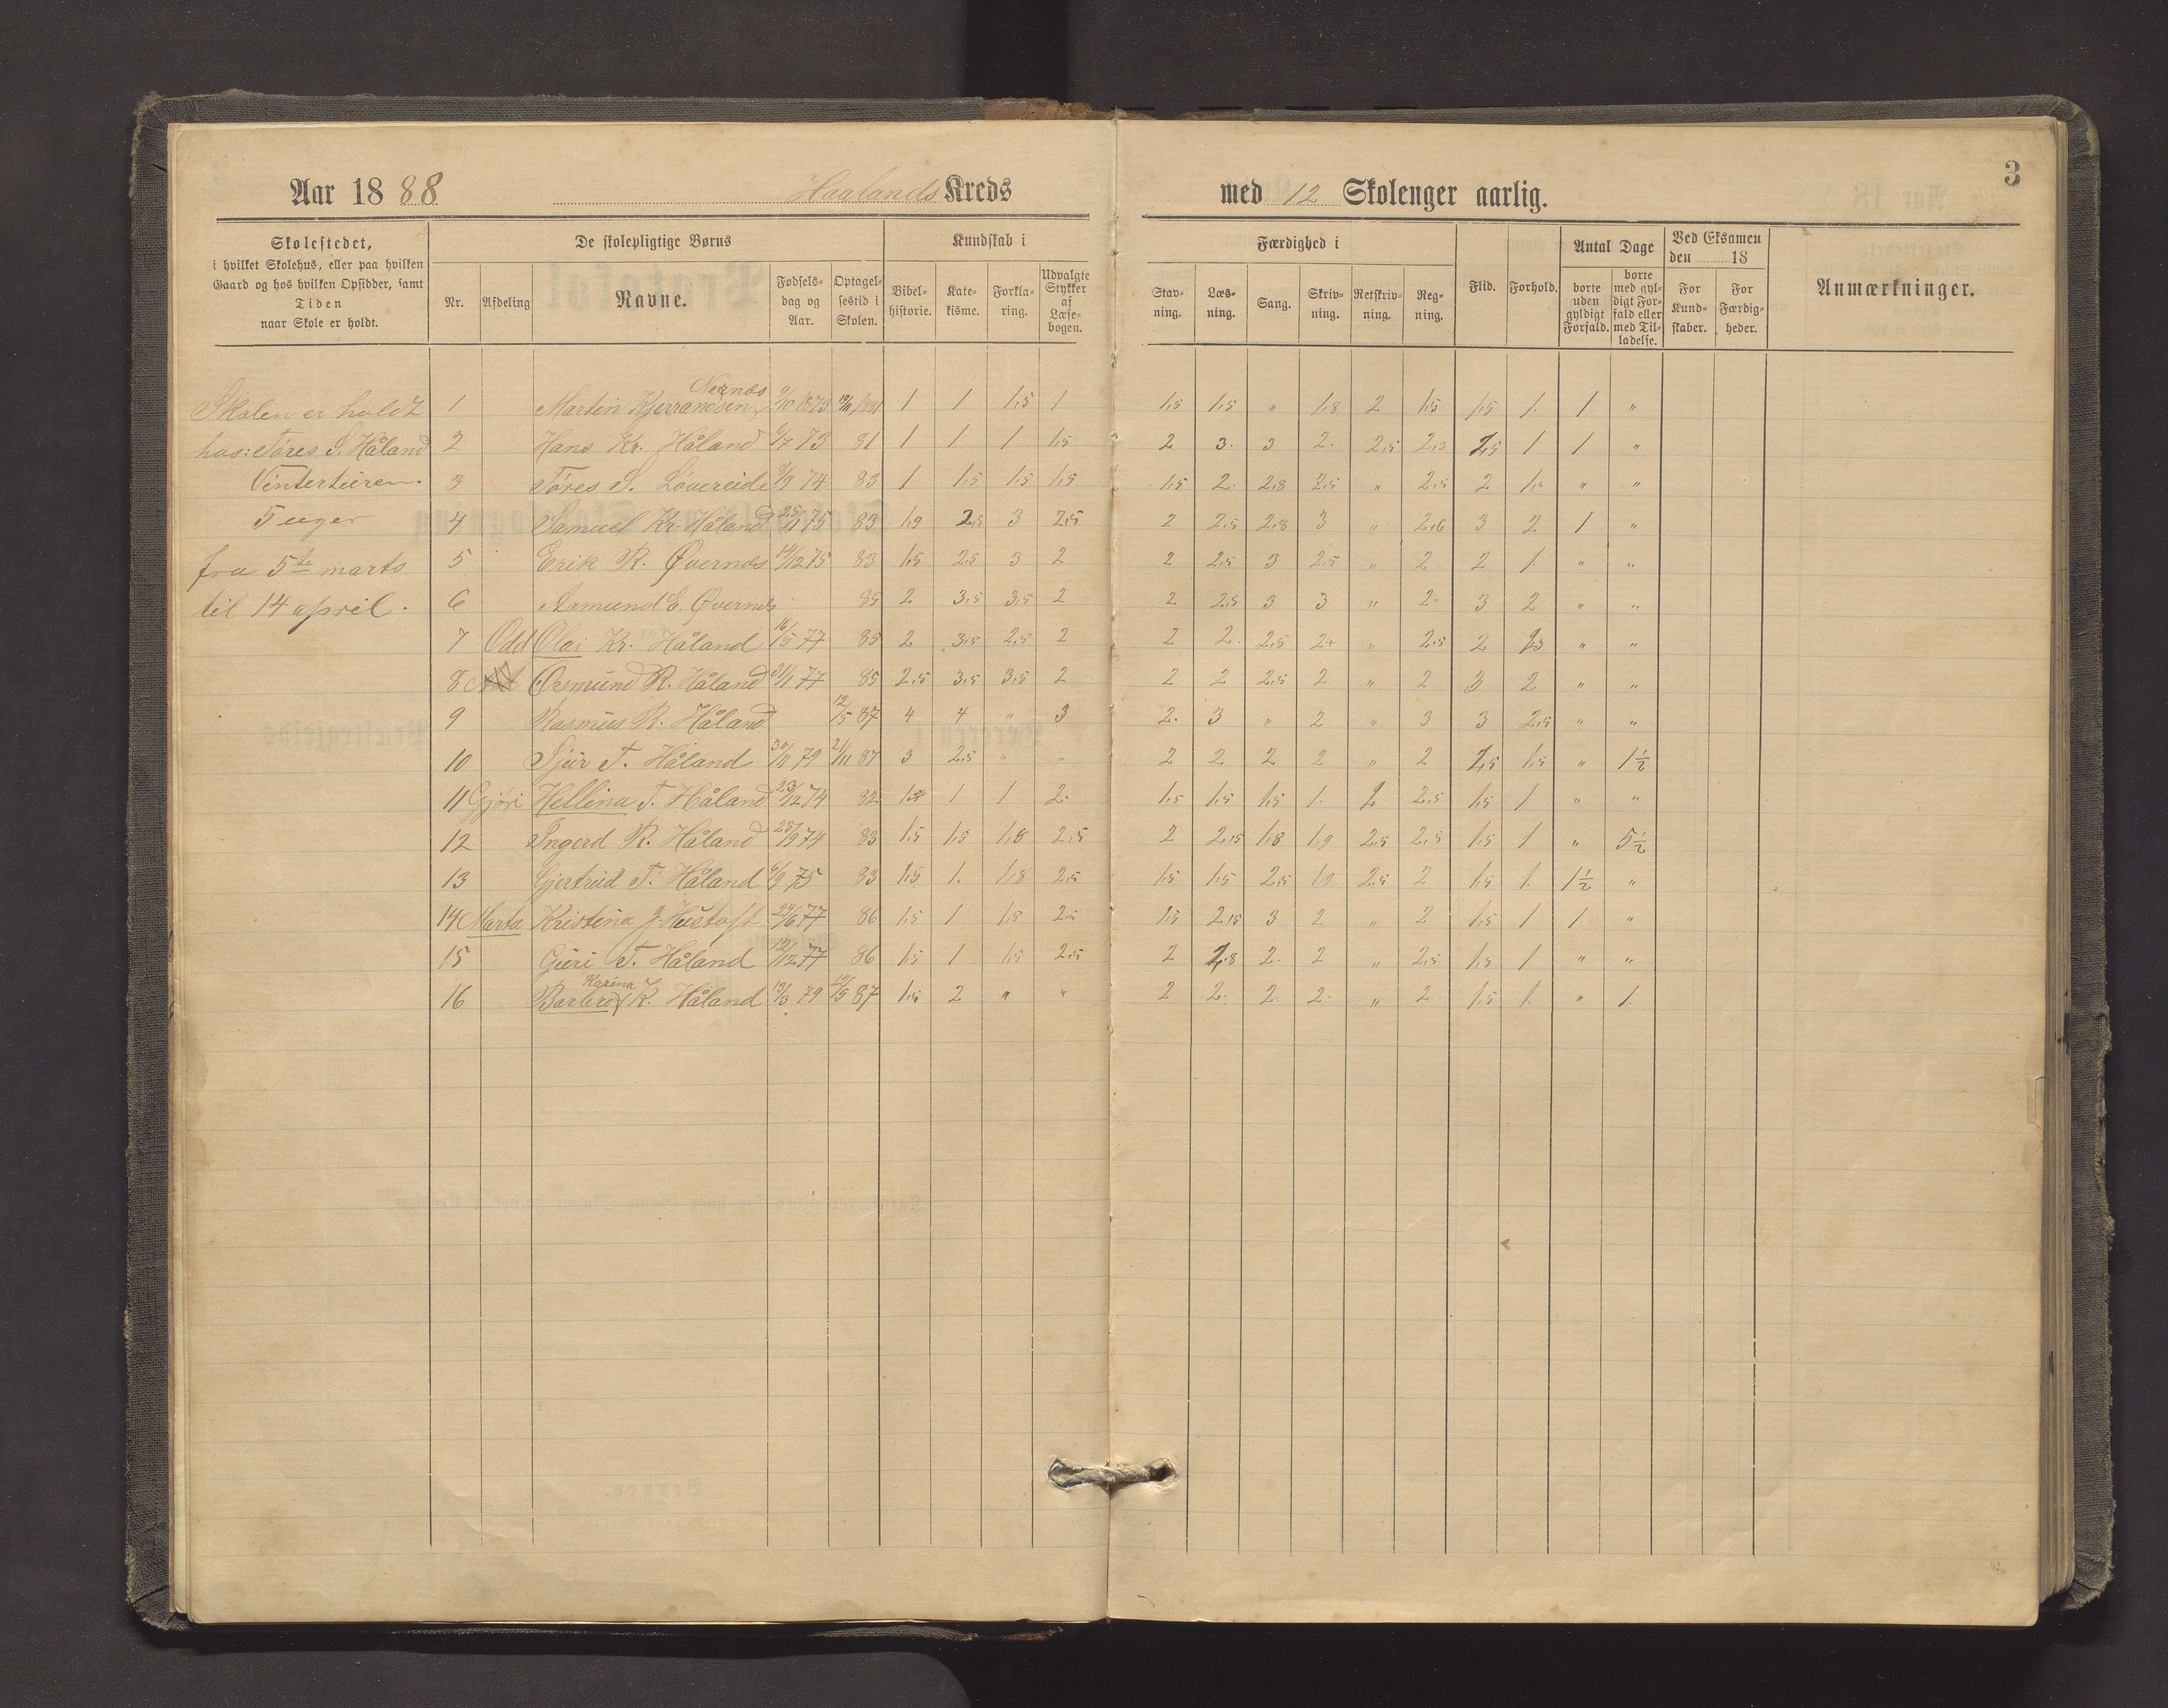 Aar 1888 Haalands Kreds med 12 Skolenger aarlig. 3
Skolestedet, i hvilket Skolehus, eller paa hvilken Gaard og hos hvilken Opsidder, samt Tiden naar Skole er holdt.
De skolepligtige Børns
Nr. Afdeling Navne. Fødsels-dag og Aar. Optagel-sestid i Skolen.
Kundskab i
Bibel-historie. Kate-kisme. Forkla-ring. Udvalgte Stykker af Læse-bogen.
Færdighed i
Stav-ning. Læs-ning. Sang. Skriv-ning. Retskriv-ning. Reg-ning.
Flid. Forhold.
Antal Dage
borte uden gyldigt Forfald. borte med gyl-digt For-fald eller med Til-ladelse.
Ved Eksamen den 18
For Kund-skaber. For Færdig-heder.
Anmærkninger.
Skolen er holdt
hos: Tøres S. Håland
Vinterturen.
5 uger
fra 5te marts
til 14 april.
1 Martin Kjerrandsen Nernæs 1 1 1,5 1 1,5 1,5 " 1,8 2 1,5 1,5 1. 1 "
2 Hans Kr. Håland 73 81 1 1 1 1,5 2 3. 3 2. 2,5 2,3 1 1 "
3 Tøres S. Løvereide 74 83 1 1,5 1,5 1,5 1,5 2. 2,8 2,5 " 2,5 2 1. " "
4 Samuel Kr. Håland 25/11 75 83 1,9 2,5 3 2,5 2 2,5 2,8 3 " 2,6 3 2 1 "
5 Erik R. Øvernæs 14/12 75 83 1,5 2,5 3 2 2 2,5 3 2,5 " 2 2 1. " "
6 Aamund E. Øvernæs 85 2 3,5 3,5 2 2 2,5 3 3 " 2. 3 2 " "
7 Odd Olai Kr. Håland 16/5 77 85 2 3,5 2,5 2 2 2. 2,5 2+ " 2,5 2 " "
8 Osmund R. Håland 77 85 2,5 3,5 3,5 2 2 2 2,5 2 " 2 3 2 " "
9 Rasmus R. Håland 12/5 87 4 4 " 3 2. 3 " 2 " 3 3 2,5 " "
10 Sjur T. Håland 30/11 79 21/11 87 3 2,5 " " 2 2 2 2 " 2 1,5 " 1½
11 Gjøri Hellina T. Håland 23/12 74 82 1 1 2. 1,5 1,5 1,5 1. 2 2,5 1,5 1 " "
12 Ingerd R. Håland 25/9 74 83 1,5 1,5 1,8 2,5 2 2,5 1,8 1,9 2,5 2,5 1,5 1 " 5½
13 Gjertrud T. Håland 6/9 75 83 1,5 1. 1,8 2,5 1,5 1,5 2,5 1,9 2,5 2 1,5 1. 1½ "
14 Marta Kristina J. Hustoft 24/6 77 86 1,5 1 1,5 2,5 1,5 2,5 3 2 " 2 1,5 1 1 "
15 Guri T. Håland 12/12 77 86 1,5 1 1,5 2,5 2 2. 2 " 2,5 1,5 1 " "
16 Barbro Karina K. Håland 13/3 79 12/5 87 1,5 2 " " 2 2. 2 2. " 2. 1,5 1. " 1.